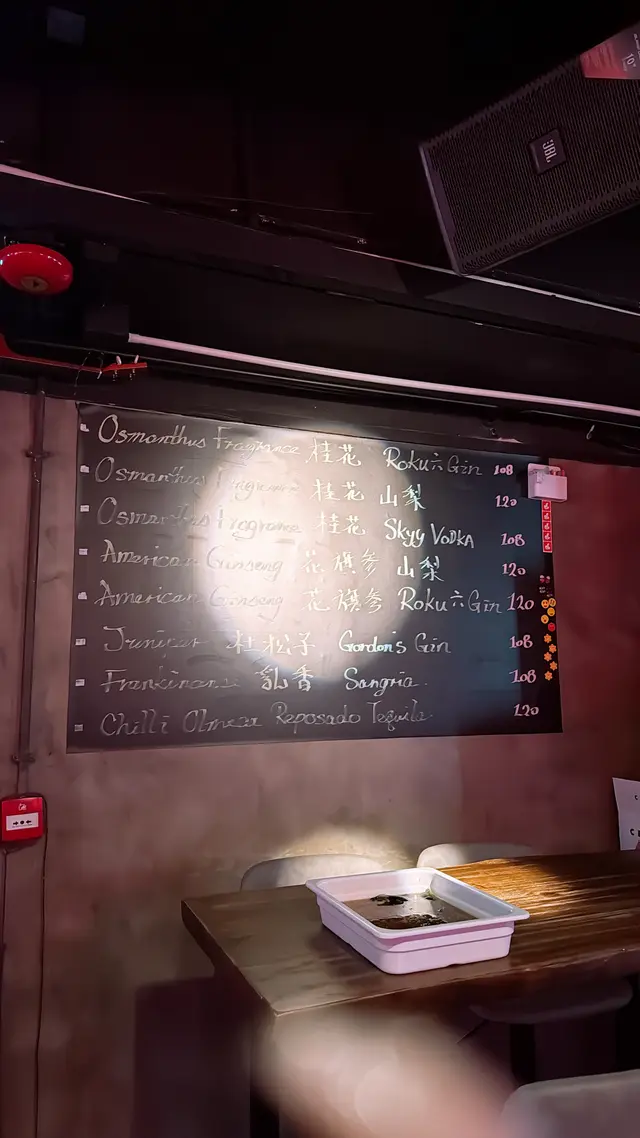 JBL
Osmanthus Fragrance 桂花 Roku六Gin 108
Osmanthus Fragrance 桂花 山梨 120
Osmanthus Fragrance 桂花 Skyy VODKA 108
American Ginseng 花旗參 山梨 120
American Ginseng 花旗參 Roku六Gin 120
Juniper 杜松子 Gordon's Gin 108
乳香 Sangria 108
Chilli Reposado Tequila 120